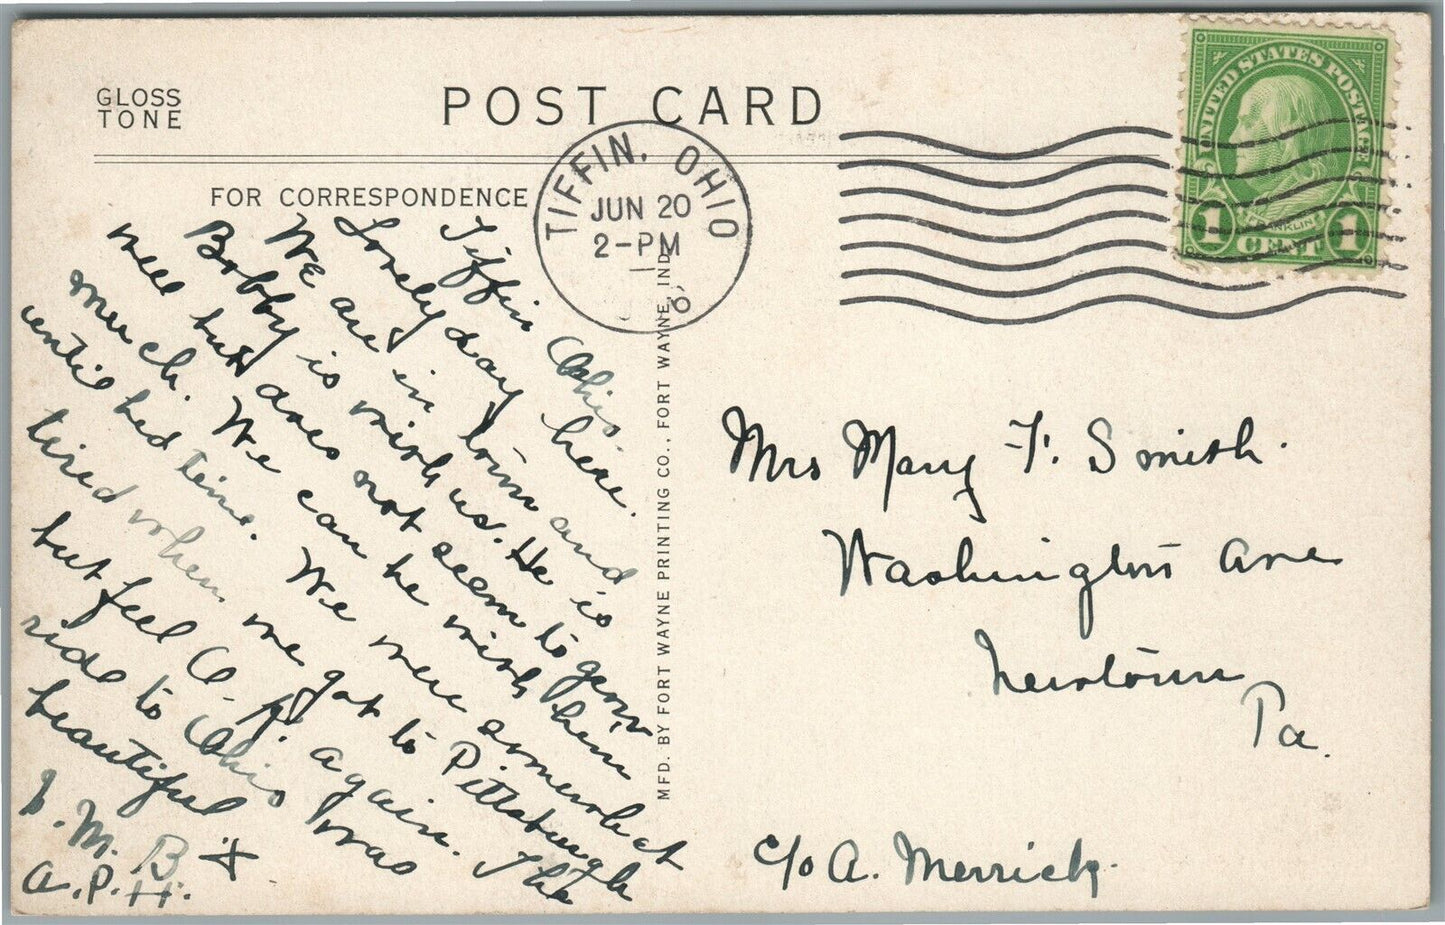 GLOSS
TONE
POST CARD
FOR CORRESPONDENCE
TIFFIN, OHIO
JUN 20
2-PM
UNITED STATES POSTAGE
FRANKLIN
1 CENT 1
Tiffin Ohio.
Lovely day here.
We are in town and
Bobby is with us. He is
well but does not seem to grow
much. We can be with him
until bed time. We were somewhat
tired when we got to Pittsburgh
but feel O.K. again. The
ride to Ohio was
beautiful
L. M. B &
A. P. H.
MFD. BY FORT WAYNE PRINTING CO., FORT WAYNE, IND.
Mrs Mary F. Smith.
Washington Ave
Newtown
Pa.
c/o A. Merrick.